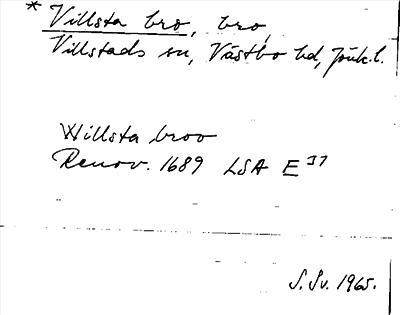 * Villsta bro, bro,
Villstads sn, Västbo hd, Jönk.l.
Willsta broo
Renov. 1689 LSA E 37
S.Sv. 1965.